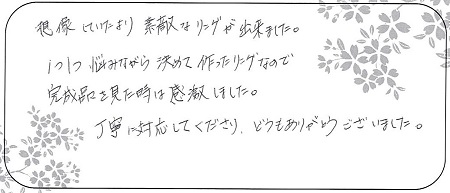 想像していたより素敵なリングが出来ました。
1つ1つ悩みながら決めて作ったリングなので
完成品を見た時は感激しました。
丁寧に対応してくださり、どうもありがとうございました。